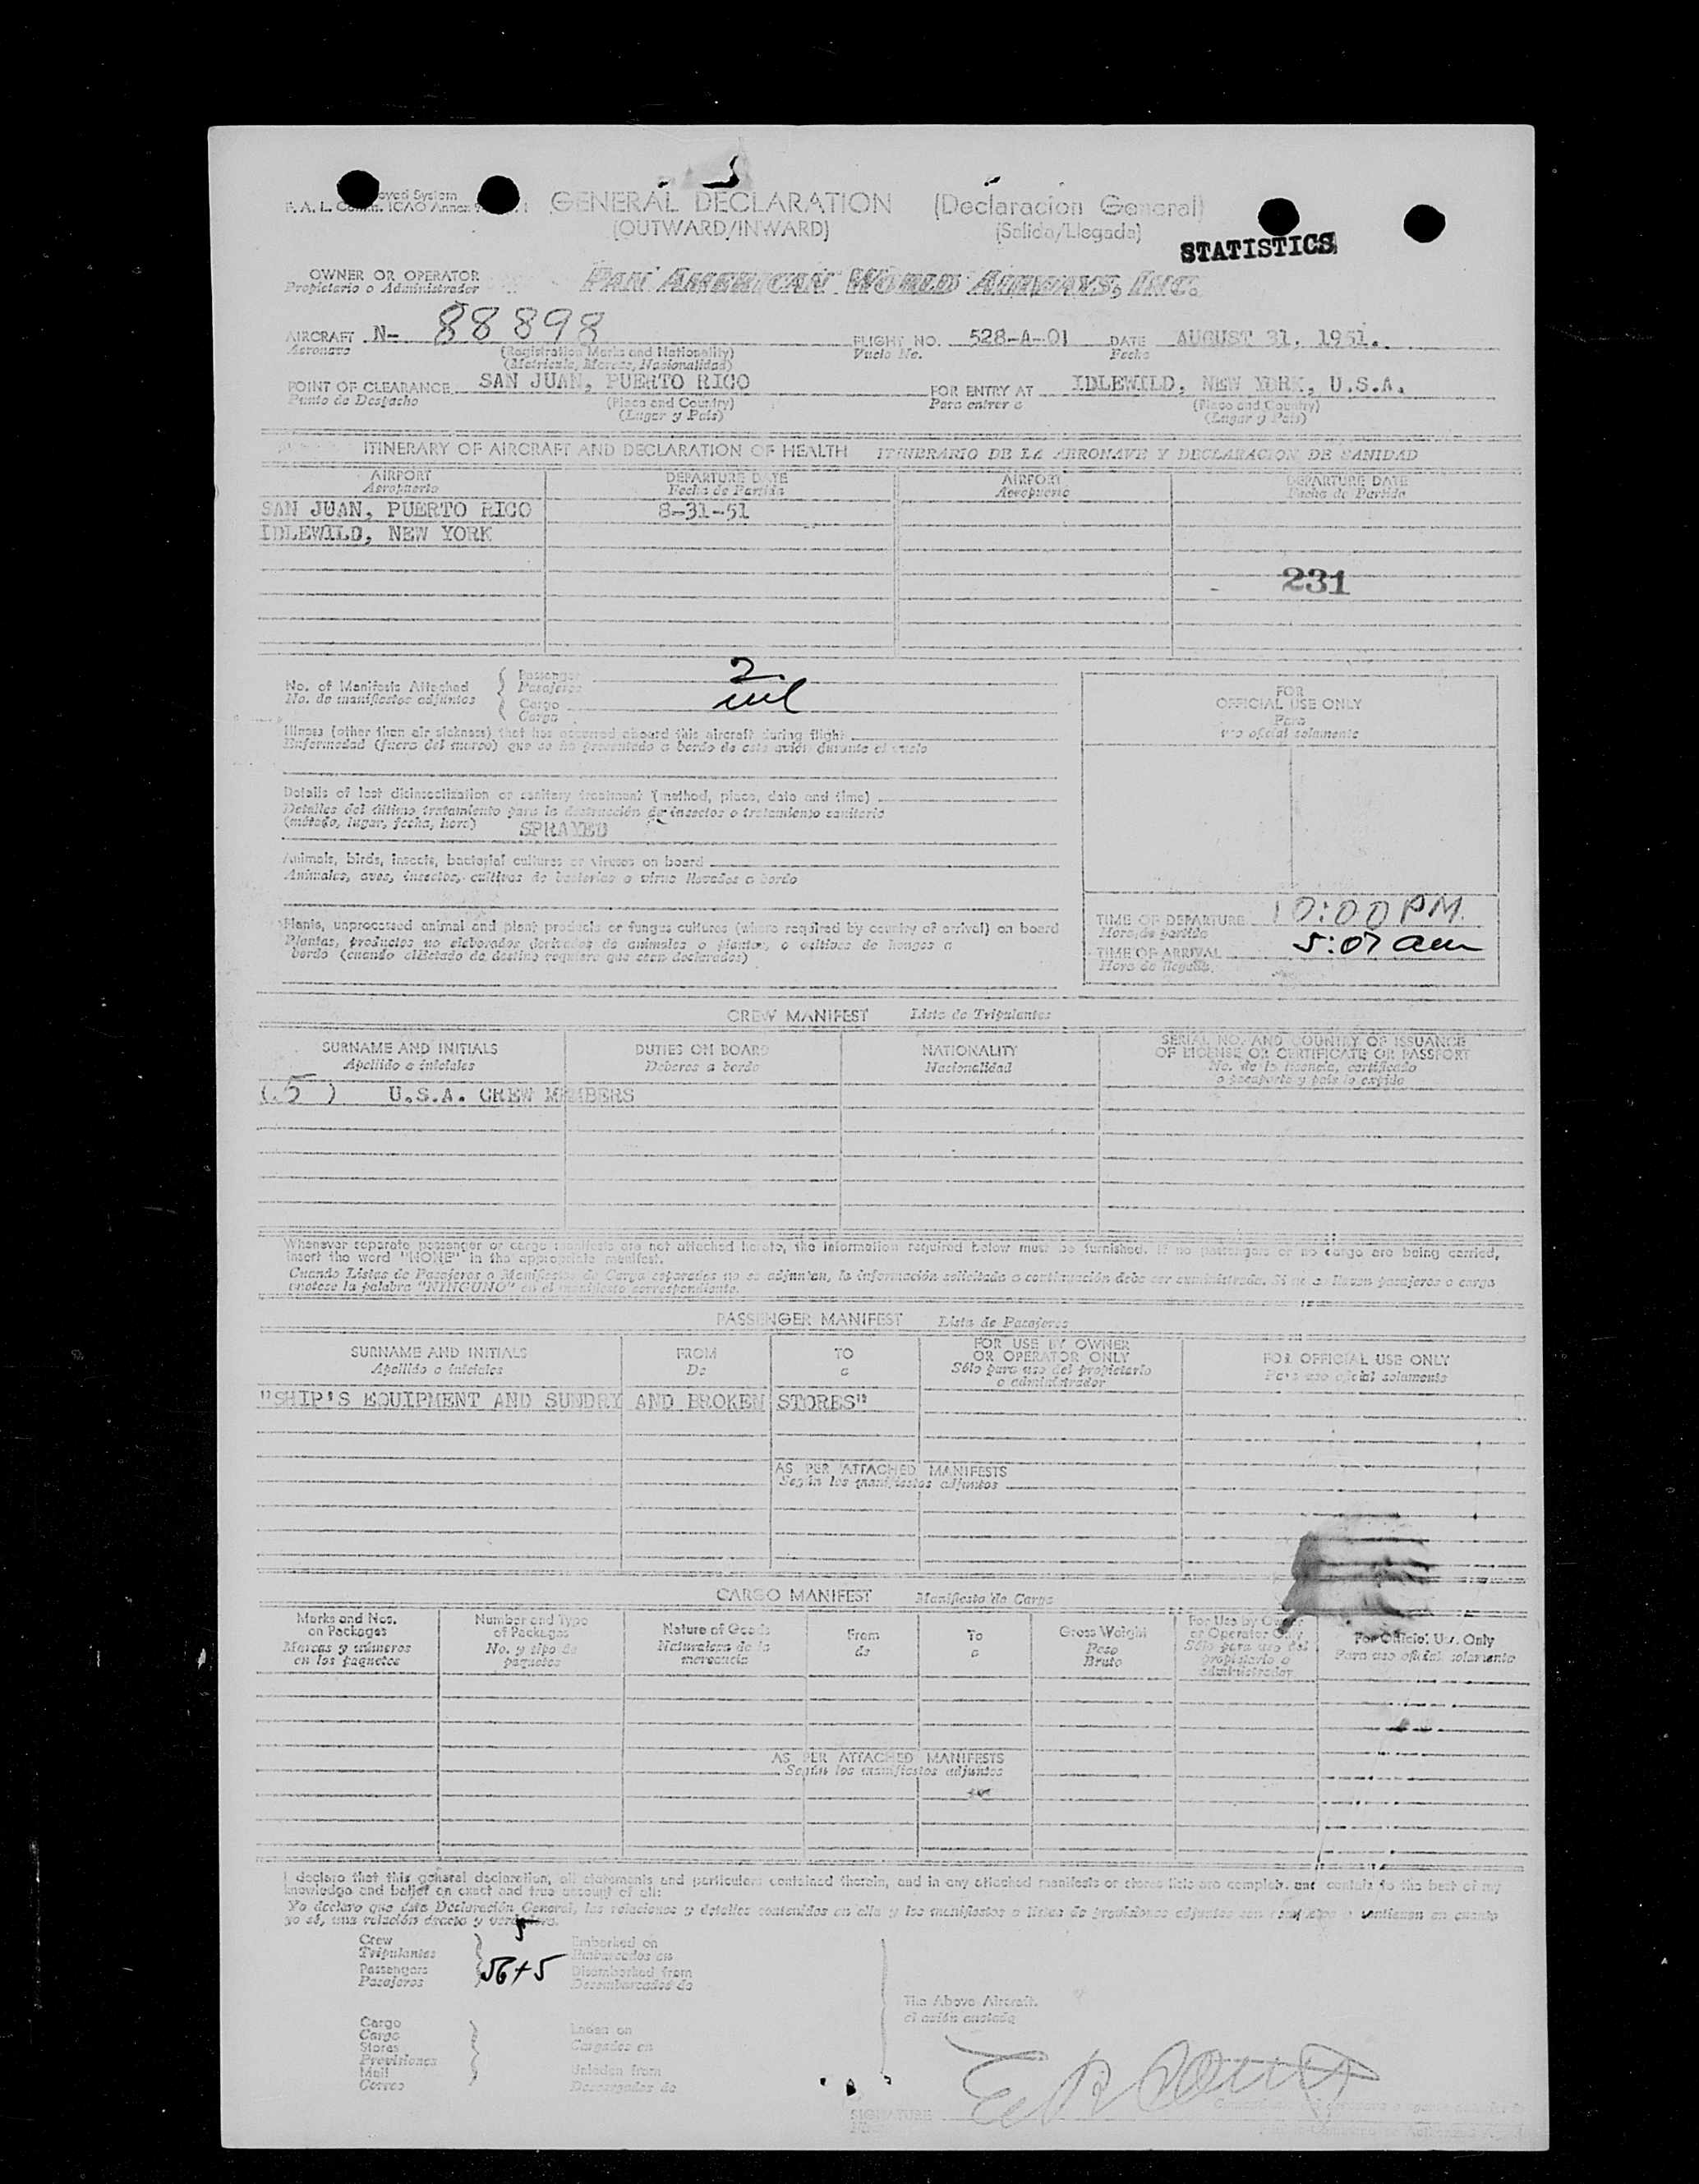 GENERAL DECLARATION (Declaracion General)
(OUTWARD/INWARD) (Salida/Llegada)
STATISTICS
OWNER OR OPERATOR
Propietario o Administrador
PAN AMERICAN WORLD AIRWAYS, INC.
AIRCRAFT N- 88898 FLIGHT NO. 528-A-01 DATE AUGUST 31, 1951.
Aeronave (Registration Marks and Nationality) Vuelo No. Fecha
(Matricula, Marcas, Nacionalidad)
POINT OF CLEARANCE SAN JUAN, PUERTO RICO FOR ENTRY AT IDLEWILD, NEW YORK, U.S.A.
Punto de Despacho (Place and Country) Para entrar a (Place and Country)
(Lugar y País) (Lugar y País)
ITINERARY OF AIRCRAFT AND DECLARATION OF HEALTH ITINERARIO DE LA AERONAVE Y DECLARACION DE SANIDAD
AIRPORT DEPARTURE DATE AIRPORT DEPARTURE DATE
Aeropuerto Fecha de Partida Aeropuerto Fecha de Partida
SAN JUAN, PUERTO RICO 8-31-51
IDLEWILD, NEW YORK
231
No. of Manifests Attached Passenger 2
No. de manifiestos adjuntos Pasajeros
Cargo nil
Carga
FOR
OFFICIAL USE ONLY
Para
uso oficial solamente
Illness (other than air sickness) that has occurred aboard this aircraft during flight
Enfermedad (fuera del mareo) que se ha presentado a bordo de este avión durante el vuelo
Details of last disinsectization or sanitary treatment (method, place, date and time)
Detalles del último tratamiento para la destrucción de insectos o tratamiento sanitario
(método, lugar, fecha, hora) SPRAYED
Animals, birds, insects, bacterial cultures or viruses on board
Animales, aves, insectos, cultivos de bacterias o virus llevados a bordo
Plants, unprocessed animal and plant products or fungus cultures (where required by country of arrival) on board
Plantas, productos no elaborados derivados de animales o plantas, o cultivos de hongos a
bordo (cuando el Estado de destino requiere que sean declarados)
TIME OF DEPARTURE 10:00 PM.
Hora de partida
TIME OF ARRIVAL 5:07 am
Hora de llegada
CREW MANIFEST Lista de Tripulantes
SURNAME AND INITIALS DUTIES ON BOARD NATIONALITY SERIAL NO. AND COUNTRY OF ISSUANCE
OF LICENSE OR CERTIFICATE OR PASSPORT
Apellido e iniciales Deberes a bordo Nacionalidad No. de la licencia, certificado
o pasaporte y país lo expide
(5) U.S.A. CREW MEMBERS
Whenever separate passenger or cargo manifests are not attached hereto, the information required below must be furnished. If no passengers or no cargo are being carried,
insert the word "NONE" in the appropriate manifest.
Cuando Listas de Pasajeros o Manifiestos de Carga separados no se adjuntan, la información solicitada a continuación debe ser suministrada. Si no se llevan pasajeros o carga
anótese la palabra "NINGUNO" en el manifiesto correspondiente.
PASSENGER MANIFEST Lista de Pasajeros
SURNAME AND INITIALS FROM TO FOR USE BY OWNER
OR OPERATOR ONLY FOR OFFICIAL USE ONLY
Apellido e iniciales De a Sólo para uso del propietario
o administrador Para uso oficial solamente
"SHIP'S EQUIPMENT AND SUNDRY AND BROKEN STORES"
AS PER ATTACHED MANIFESTS
Según los manifiestos adjuntos
CARGO MANIFEST Manifiesto de Carga
Marks and Nos.
on Packages
Marcas y números
en los paquetes
Number and Type
of Packages
No. y tipo de
paquetes
Nature of Goods
Naturaleza de la
mercancía
From
de
To
a
Gross Weight
Peso
Bruto
For Use by Owner
or Operator Only
Sólo para uso del
propietario o
administrador
For Official Use Only
Para uso oficial solamente
AS PER ATTACHED MANIFESTS
Según los manifiestos adjuntos
I declare that this general declaration, all statements and particulars contained therein, and in any attached manifests or stores lists are complete and contain to the best of my
knowledge and belief an exact and true account of all:
Yo declaro que esta Declaración General, las relaciones y detalles contenidos en ella y los manifiestos o listas de provisiones adjuntos son completos y contienen en cuanto
yo sé, una relación exacta y verdadera.
Crew 5 Embarked on
Tripulantes Embarcados en
Passengers 56+5 Disembarked from
Pasajeros Desembarcados de
The Above Aircraft.
el avión anotado
Cargo
Carga
Stores
Provisiones
Mail
Correo
Laden on
Cargados en
Unladen from
Descargados de
SIGNATURE